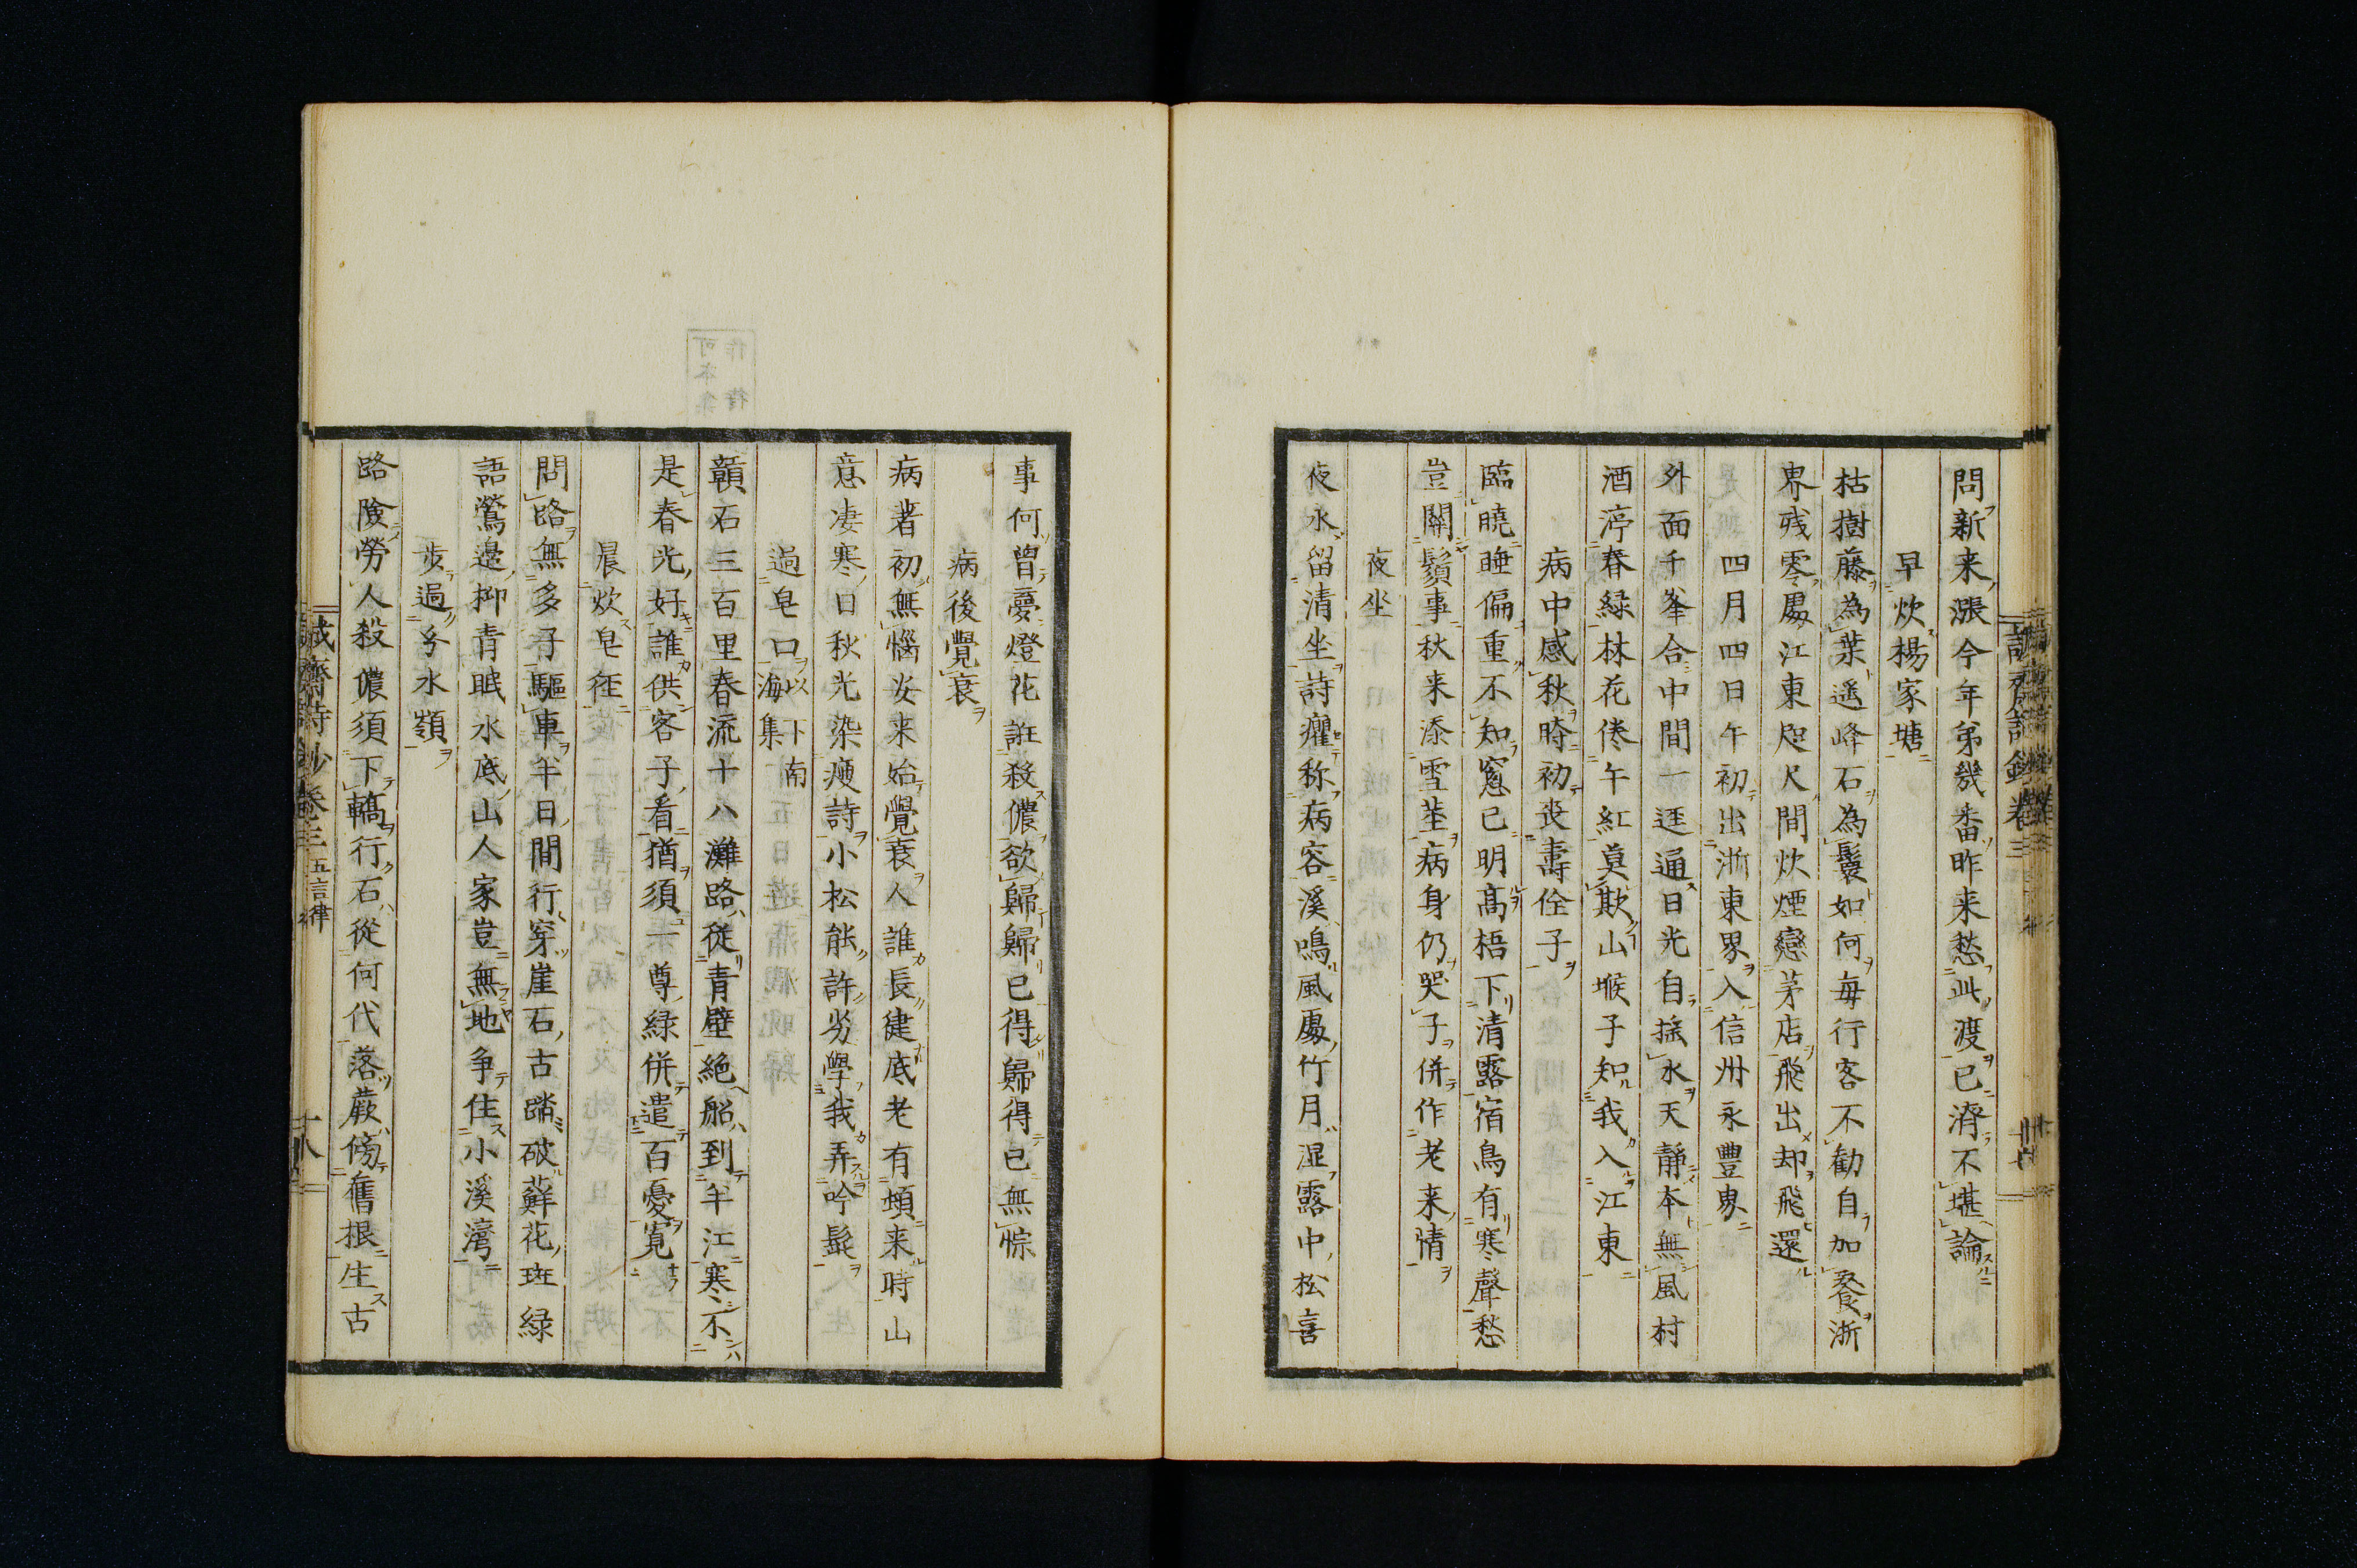 問新来漲今年第幾番昨来愁此渡已濟不堪論
早炊楊家塘
枯樹藤為葉遥峰石為鬟如何毎行客不勧自加餐浙
界残零處江東咫尺間炊煙戀茅店飛出却飛還
四月四日午初出浙東界入信州永豊界
外面千峯合中間一逕通日光自揺水天静本無風村
酒渟春緑林花倦午紅莫欺山堠子知我入江東
病中感秋時初喪壽佺子
臨曉睡偏重不知窓已明高梧下清露宿鳥有寒聲愁
豈關鬚事秋来添雪莖病身仍哭子併作老来情
夜坐
夜氷留清坐詩癯称病容溪鳴風處竹月湿露中松喜
事何曽夢燈花誑殺儂欲歸歸已得歸得已無悰
病後覺衰
病著初無惱安来始覺衰人誰長健底老有頓来時山
意凄寒日秋光染瘦詩小松能許劣學我弄吟髭
過皂口以下南海集
贛石三百里春流十八灘路從青壁絶船到半江寒不
是春光好誰供客子看猶須一尊緑併遣百憂寛
晨炊皂徑
問路無多子驅車半日間行穿崖石古踏破蘚花斑緑
語鶯邊柳青眠水底山人家豈無地争住小溪灣
歩過分水嶺
路險勞人殺儂須下轎行石從何代落蕨傍舊根生古
誠齋詩鈔卷三 五言律
十八